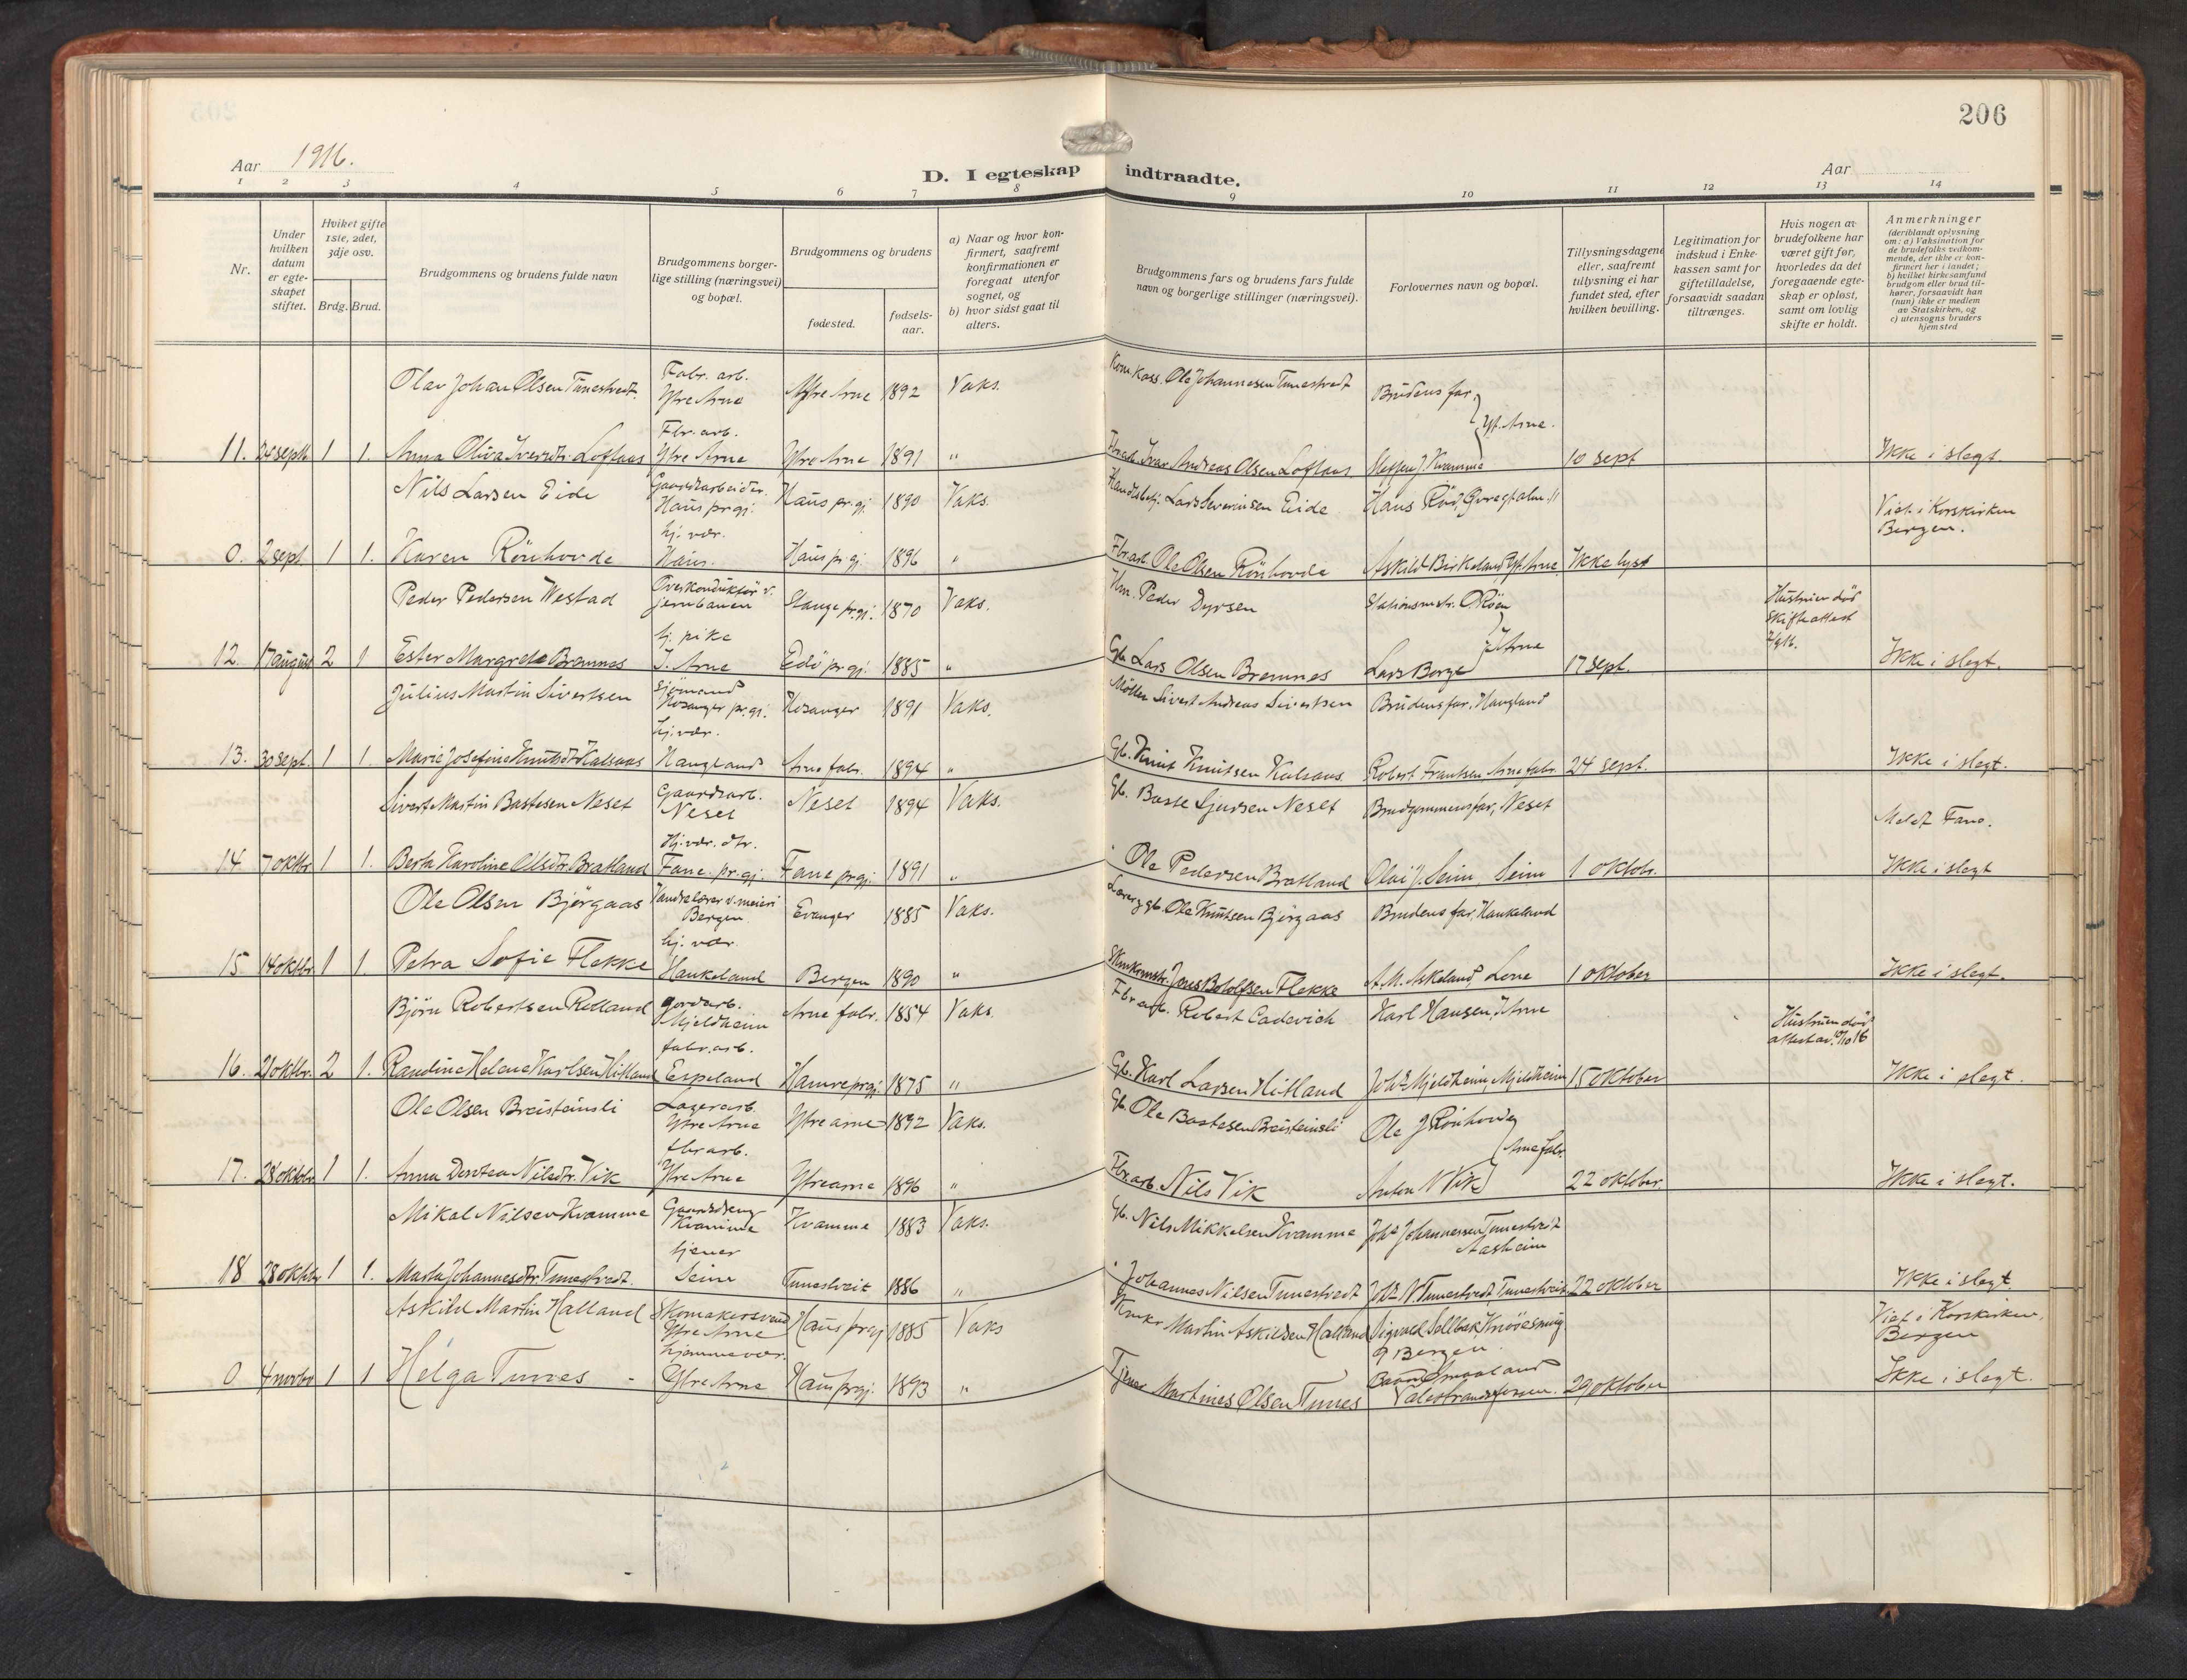 206
Aar 1916.
D. I egteskap indtraadte.
Aar
1 2 3 4 5 6 7 8 9 10 11 12 13 14
Nr.
Under hvilken datum er egteskapet stiftet.
Hviket gifte 1ste, 2det, 3dje osv.
Brdg. Brud.
Brudgommens og brudens fulde navn
Brudgommens borgerlige stilling (næringsvei) og bopæl.
Brudgommens og brudens
fødested.
fødselsaar.
a) Naar og hvor konfirmert, saafremt konfirmationen er foregaat utenfor sognet, og
b) hvor sidst gaat til alters.
Brudgommens fars og brudens fars fulde navn og borgerlige stillinger (næringsvei).
Forlovernes navn og bopæl.
Tillysningsdagene eller, saafremt tillysning ei har fundet sted, efter hvilken bevilling.
Legitimation for indskud i Enkekassen samt for giftetilladelse, forsaavidt saadan tiltrænges.
Hvis nogen av brudefolkene har været gift før, hvorledes da det foregaaende egteskap er opløst, samt om lovlig skifte er holdt.
Anmerkninger (deriblandt oplysning om: a) Vaksination for de brudefolks vedkommende, der ikke er konfirmert her i landet; b) hvilket kirkesamfund brudgom eller brud tilhører, forsaavidt han (hun) ikke er medlem av Statskirken, og c) utensogns bruders hjemsted
Olav Johan Olsen Tunestvedt. Fabr. arb. Ytre Arne Ytre Arne 1892 Vaks. Kom. kass. Ole Johannesen Tunestvedt Brudens far, Yt. Arne.
11. 24 sept. 1 1. Anna Oliva Iversdtr. Loftaas Fbr. arb. Ytre Arne Ytre Arne 1891 " Fbrarb. Ivar Andreas Olsen Loftaas Steffen J Kvamme 10 sept Ikke i slegt.
Nils Larsen Eide Gaardsarbeider. Haus prgj. Haus pr.gj. 1890 Vaks. Handelsbetj. Lars Severinsen Eide Hans Röd, Viet i Korskirken Bergen.
0. 2 sept. 1 1. Karen Rönhovde hj. vær. Haus. Haus pr. gj. 1896 " Fbrarb. Ole Olsen Rönhovde Askild Birkeland, Yt. Arne Ikke lyst
Peder Pedersen Westad Overkonduktör v. jernbanen Stange pr.gj. 1870 Vaks. Hm. Peder Dyrsen Stationsmstr. O Röen Y Arne Hustruen död Skifteattest
12. 17 august 2 1 Ester Margrete Bremnes hj. pike I. Arne Edö pr.gj. 1885 " Gb. Lars Olsen Bremnes Lars Borge 17 sept. Ikke i slegt.
Julius Martin Sivertsen Sjömand Hosanger pr.gj. Hosanger 1891 Vaks. Möller Sivert Andreas Sivertsen Brudens far, Haugland
13. 30 sept. 1 1. Marie Josefine Knutsdtr Kalsaas hj. vær. Haugland Arne fabr. 1894 " Gb. Knut Knutsen Kalsaas Robert Frantsen Arne fabr. 24 sept. Ikke i slegt.
Sivert Martin Bastesen Neset Gaardsarb. Neset Neset 1894 Vaks. Gb. Baste Sjursen Neset Brudgommens far, Neset Meldt Fane.
14. 7 oktbr 1 1. Berta Karoline Olsdtr. Bratland Hj. vær. dtr. Fane pr.gj. Fane prgj. 1891 " Ole Pedersen Bratland Olai J. Seim, Seim 1 oktobr. Ikke i slegt
Ole Olsen Björgaas Vandrelærer v. meieri Bergen Evanger 1885 Vaks. Lærer, gb. Ole Knutsen Björgaas Brudens far, Haukeland
15 14 oktbr 1 1. Petra Sofie Flekke hj. vær. Haukeland Bergen 1890 " Jens Botolfsen Flekke A. M. Askeland, Lone 1 oktober Ikke i slegt.
Björn Robertsen Relland gardarb. Mjeldheim Arne fabr. 1854 Vaks. Fbrarb. Robert Cadevich Karl Hansen, Y Arne Hustruen död attest av. 10/10 16
16. 21 oktbr. 2 1. Randine Helene Karlsen Hitland fabr. arb. Espeland Hamre prgj. 1875 " Gb. Karl Larsen Hitland Johs Mjeldheim, Mjeldheim 15 oktober Ikke i slegt.
Ole Olsen Breisteinsli Lagerarb. Ytre Arne Ytrearne 1892 Vaks. Gb. Ole Bastesen Breisteinsli Ole J Rönhovde Arne fabr.
17. 28 oktobr 1 1. Anna Dorotea Nilsdtr. Vik fbrarb. Ytre Arne Ytrearne 1896 " Fbrarb. Nils Vik Anton N Vik 22 oktober. Ikke i slegt.
Mikal Nilsen Kvamme Gaardsdreng Kvamme Kvamme 1883 Vaks. Gb. Nils Mikkelsen Kvamme Johs Johannessen Tunestveit Aasheim
18 28 oktbr 1 1. Marta Johannesdtr. Tunestvedt. tjener Seim Tunestveit 1886 " Johannes Nilsen Tunestvedt Johs N. Tunestvedt Tunestveit 22 oktober Ikke i slegt
Askild Martin Halland Skomakersvend Ytre Arne Haus prgj 1885 Vaks Martin Askildsen Halland Sigvald Sellbæk, Bergen. Viet i Korskirken, Bergen
0. 4 novbr 1 1 Helga Tunes hjemmevær. Ytre Arne Haus prgj. 1893 " Tjener Martines Olsen Tunes Smaaland Valestrandsfossen. 29 oktober Ikke i slegt.